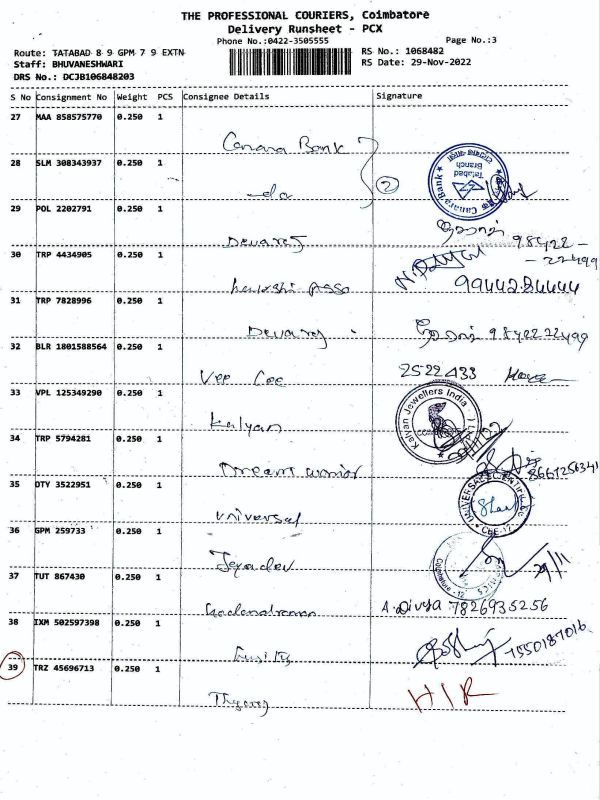 THE PROFESSIONAL COURIERS, Coimbatore
Delivery Runsheet - PCX
Phone No.:0422-3505555
Page No.:3
Route: TATABAD 8 9 GPM 7 9 EXTN
RS No.: 1068482
Staff: BHUVANESHWARI
RS Date: 29-Nov-2022
DRS No.: DC3B106848203
S No Consignment No Weight PCS Consignee Details Signature
27 MAA 858575770 0.250 1
Canara Bank
28 SLM 308343937 0.250 1
do
2
Canara Bank
Tatabad
Branch
29 POL 2202791 0.250 1
Devaraj
98422-
-22499
30 TRP 4434905 0.250 1
9944284444
31 TRP 7828996 0.250 1
Devaraj
98422 22499
32 BLR 1801588564 0.250 1
Vee Cee
2522433
33 VPL 125349290 0.250 1
Kalyan
Kalyan Jewellers India
34 TRP 5794281 0.250 1
Dream warrior
35 OTY 3522951 0.250 1
universal
CBE-12
36 GPM 259733 0.250 1
Jeyadev
29/11
37 TUT 867430 0.250 1
A. Divya 7826935256
38 IXM 502597398 0.250 1
39 TRZ 45696713 0.250 1
HIR